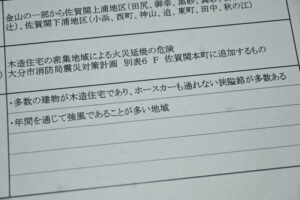 金山の一部から佐賀関上浦地区(田尻、御幸、
辻)、佐賀関下浦地区(小浜、西町、神山、迫、東町、田中、秋の江)
木造住宅の密集地域による火災延焼の危険
大分市消防局震災対策計画 別表6 F 佐賀関本町に追加するもの
・多数の建物が木造住宅であり、ホースカーも通れない狭隘路が多数ある
・年間を通じて強風であることが多い地域